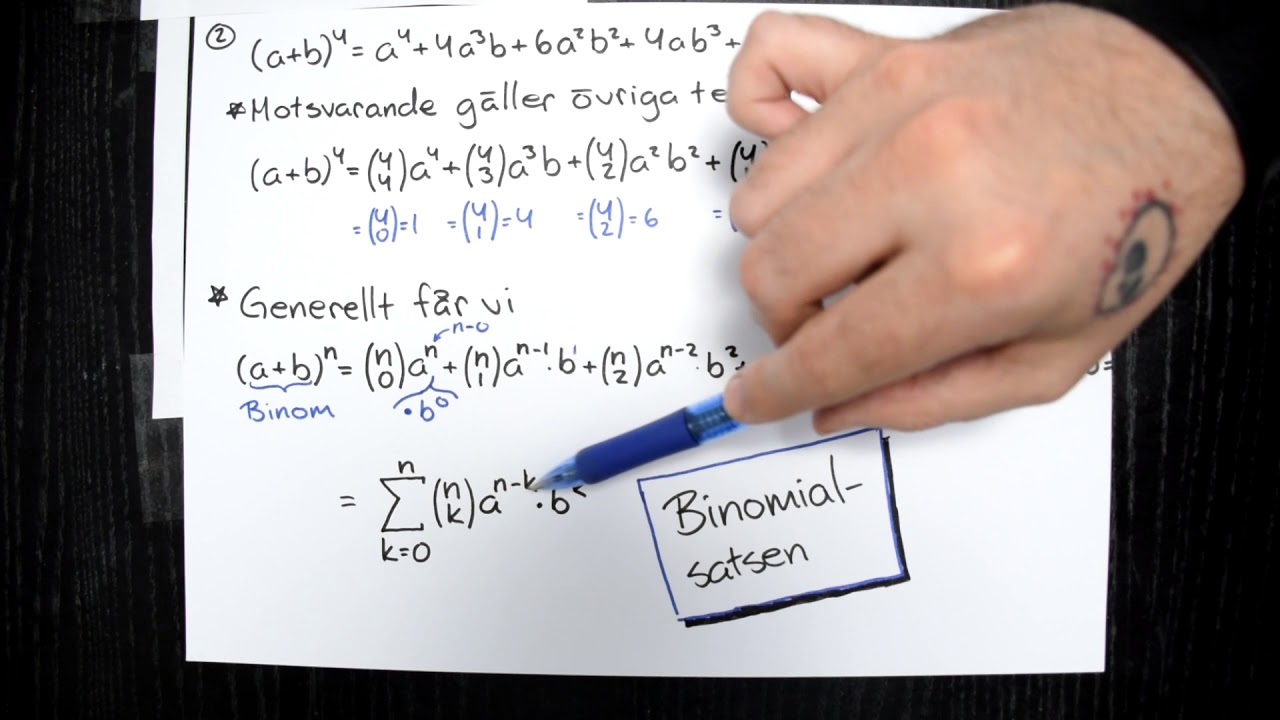 ② (a+b)⁴ = a⁴ + 4a³b + 6a²b² + 4ab³ +
* Motsvarande gäller övriga
(a+b)⁴ = (4 4)a⁴ + (4 3)a³b + (4 2)a²b² + (4
= (4 0) = 1 = (4 1) = 4 = (4 2) = 6 = (
* Generellt får vi
n-0
(a+b)ⁿ = (n 0)aⁿ + (n 1)aⁿ⁻¹·b¹ + (n 2)aⁿ⁻²·b²
Binom ·b⁰
= n Σ k=0 (n k)aⁿ⁻ᵏ·b
Binomial-
satsen